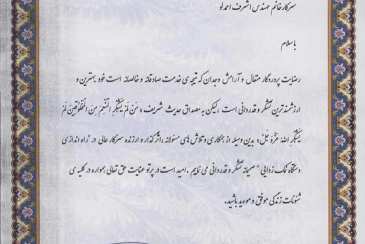 سرکار خانم مهندس اشرف احمدلو
با سلام
رضایت پروردگار متعال و آرامش وجدان که نتیجه‌ی خدمت صادقانه و خالصانه است خود بهترین و
ارزشمندترین تشکر و قدردانی است ، لیکن به مصداق حدیث شریف ، مَن لَم یَشکُرِ المُنعِمَ مِنَ المَخلوقینَ لَم
یَشکُرِ اللهَ عَزَّوَجَلَّ ، بدین وسیله از همکاری و تلاش های مسئولانه ، اثرگذار و ارزنده سرکار عالی در "راه اندازی
دستگاه نمک زدایی" صمیمانه تشکر و قدردانی می نمایم . امید است در پرتو عنایت حق تعالی همواره در کلیه ی
شئونات زندگی موفق و موید باشید.